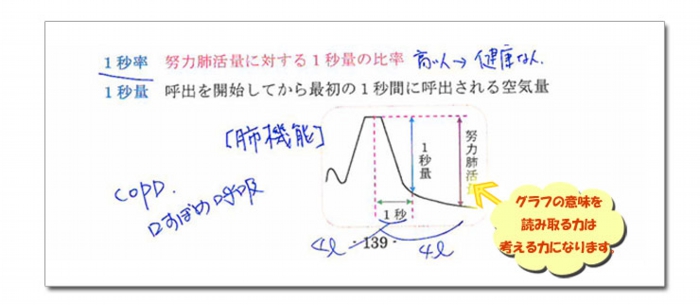 1秒率 努力肺活量に対する1秒量の比率 高い人→健康な人.
1秒量 呼出を開始してから最初の1秒間に呼出される空気量
[肺機能]
1秒量
努力肺活
COPD.
口すぼめ呼吸
1秒
4ℓ
·139·
4ℓ
グラフの意味を
読み取る力は
考える力になります。